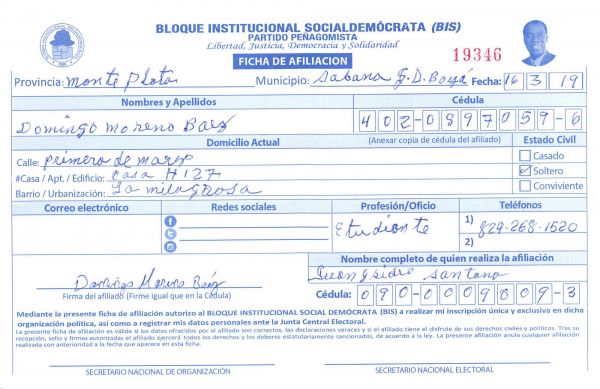 BLOQUE INSTITUCIONAL SOCIALDEMÓCRATA (BIS)
PARTIDO PEÑAGOMISTA
Libertad, Justicia, Democracia y Solidaridad
FICHA DE AFILIACION
19346
Provincia: Monte Plata Municipio: Sabana G.D. Boyá Fecha: 16 3 19
Nombres y Apellidos Cédula
Domingo Moreno Baez 402-0897059-6
Domicilio Actual (Anexar copia de cédula del afiliado) Estado Civil
Calle: primera de marzo Casado
#Casa / Apt. / Edificio: Casa # 127 Soltero
Barrio / Urbanización: La milagrosa Conviviente
Correo electrónico Redes sociales Profesión/Oficio Teléfonos
Etudiante 1) 829-268-1520
2)
Nombre completo de quien realiza la afiliación
Domingo Moreno Baéz santana
Firma del afiliado (Firme igual que en la Cédula) Cédula: 090-0009809-3
Mediante la presente ficha de afiliación autorizo al BLOQUE INSTITUCIONAL SOCIAL DEMÓCRATA (BIS) a realizar mi inscripción única y exclusiva en dicha
organización política, así como a registrar mis datos personales ante la Junta Central Electoral.
La presente ficha de afiliación es valida si los datos ofrecidos por el afiliado son correctos, las declaraciones veraces y si el afiliado tiene el disfrute de sus derechos civiles y políticos. Tras su
recepción, sello y firmas autorizadas el afiliado ejercerá todos los derechos y los deberes estatutariamente establecidos, de acuerdo a la ley. La presente afiliación anula cualquier afiliación
realizada con anterioridad a la fecha que aparece en esta ficha.
SECRETARIO NACIONAL DE ORGANIZACIÓN SECRETARIO NACIONAL ELECTORAL